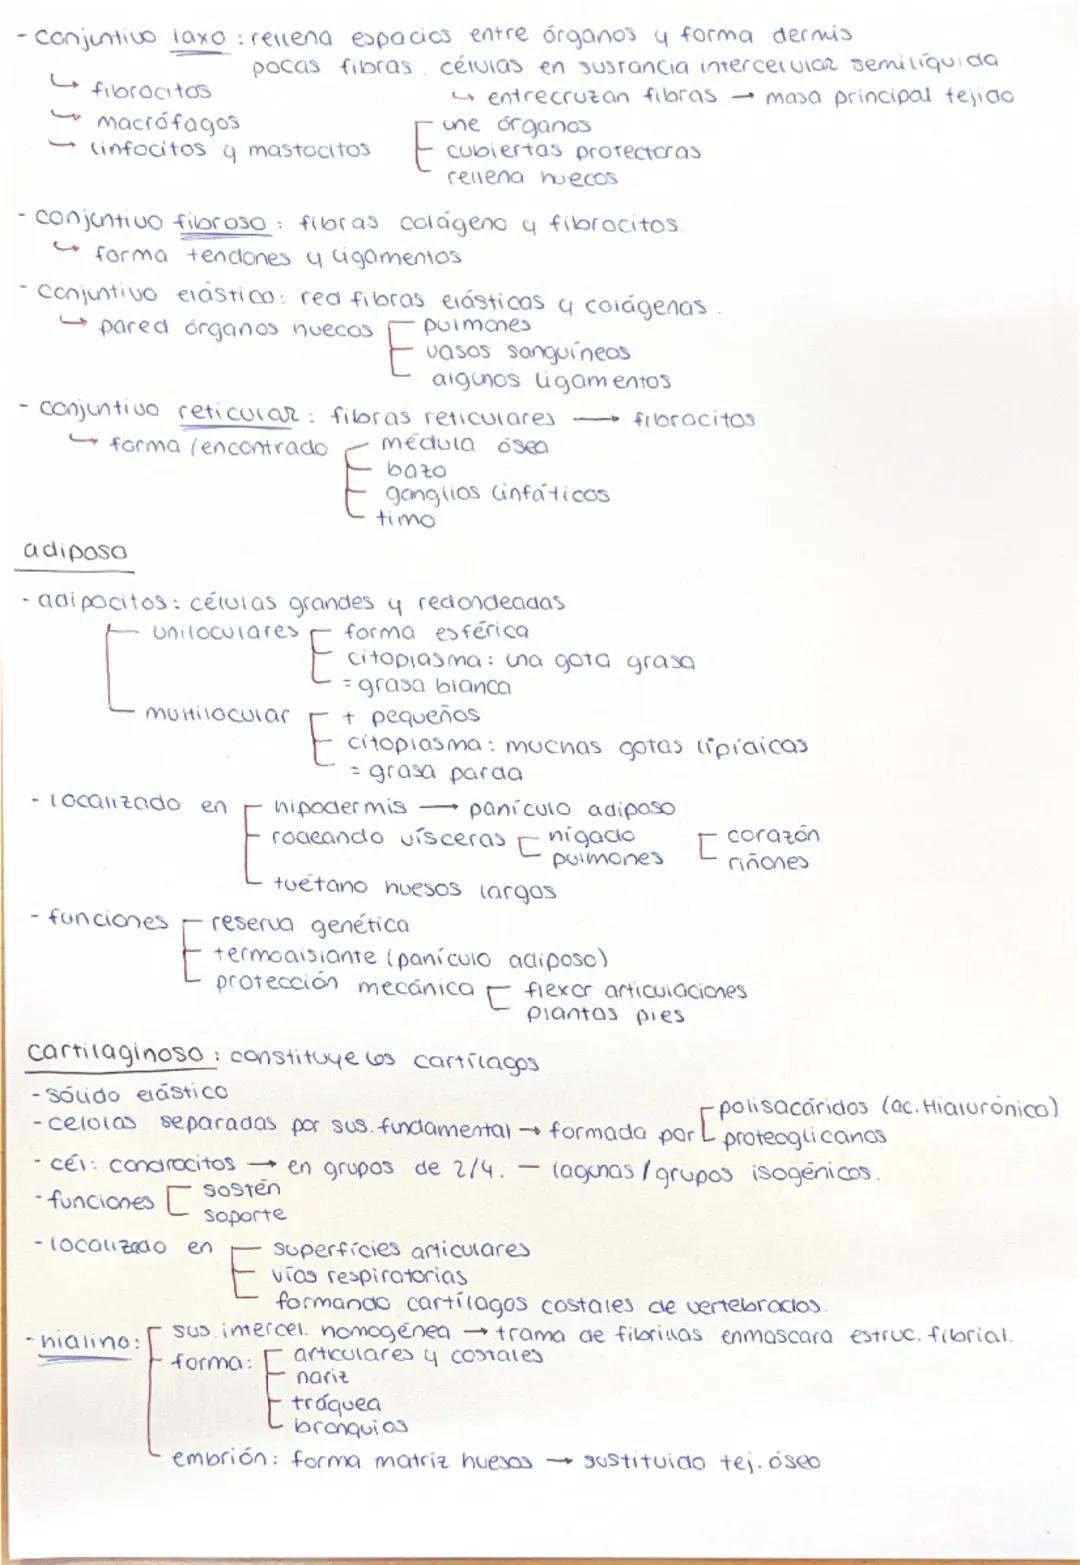 - conjuntivo laxo : rellena espacios entre órganos y forma dermis
pocas fibras. células en sustancia intercelular semilíquida
↳ fibrocitos ↳ entrecruzan fibras → masa principal tejido
↳ macrófagos une órganos
↳ linfocitos y mastocitos cubiertas protectoras
rellena huecos
- conjuntivo fibroso : fibras colágeno y fibrocitos.
↳ forma tendones y ligamentos
- conjuntivo elástico: red fibras elásticas y colágenas.
↳ pared órganos huecos pulmones
vasos sanguíneos
algunos ligamentos
- conjuntivo reticular : fibras reticulares → fibrocitos
↳ forma / encontrado médula ósea
bazo
ganglios linfáticos
timo
adiposo
- adipocitos: células grandes y redondeadas
uniloculares forma esférica
citoplasma: una gota grasa
= grasa blanca
multilocular + pequeños
citoplasma: muchas gotas lipídicas
= grasa parda
- localizado en hipodermis → panículo adiposo
rodeando vísceras hígado corazón
pulmones riñones
tuétano huesos largos
- funciones reserva genética
termoaislante (panículo adiposo)
protección mecánica flexor articulaciones
plantas pies
cartilaginoso : constituye los cartílagos
- sólido elástico
- celulas separadas por sus. fundamental → formada por polisacáridos (ac. Hialurónico)
proteoglicanos
- cél: condrocitos → en grupos de 2/4. — lagunas / grupos isogénicos.
- funciones sostén
soporte
- localizado en superfícies articulares
vías respiratorias
formando cartílagos costales de vertebrados.
- hialino: sus. intercel. homogénea → trama de fibrillas enmascara estruc. fibrial.
forma: articulares y costales
nariz
tráquea
bronquios
embrión: forma matriz huesos → sustituido tej. óseo